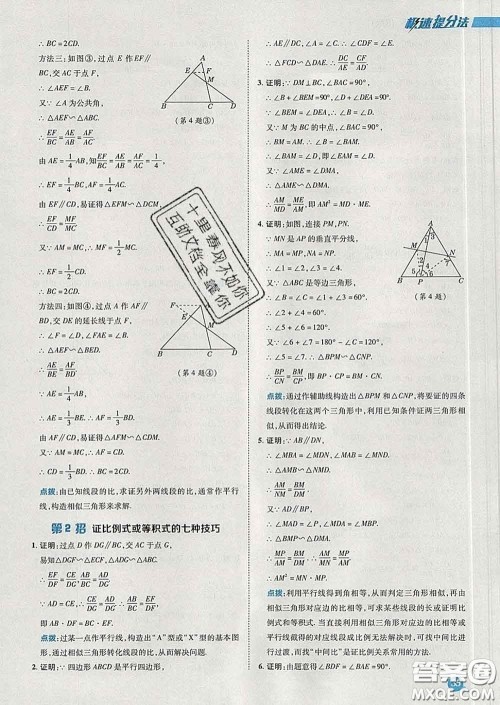 极速提分法
∴ BC=2CD.
方法三:如图③,过点 E 作 EF∥
BC,交 AC 于点 F,
∴ ∠AEF=∠B.
又∵ ∠A 为公共角,
∴ △AEF∽△ABC.
∴ EF/BC=AE/AB=AF/AC.
由 AE=1/4 AB,知EF/BC=AE/AB=AF/AC=1/4,
∴ EF=1/4 BC,AF=1/4 AC.
由 EF∥CD,易证得△EFM∽△DCM,
∴ EF/CD=MF/MC.
又∵ AM=MC,∴ MF=1/2 MC.
∴ EF=1/2 CD.
∴ BC=2CD.
方法四:如图④,过点 A 作 AF∥
BD,交 DE 的延长线于点 F,
∴ ∠F=∠D,∠FAE=∠B.
∴ △AEF∽△BED.
∴ AE/BE=AF/BD.
∵ AE=1/4 AB,∴ AE=1/3 BE.
∴ AF=1/3 BD.
由 AF∥CD,易证得△AFM∽△CDM.
又∵ AM=MC,∴ AF=CD.
∴ CD=1/3 BD.∴ BC=2CD.
(第 4 题③)
(第 4 题④)
点拨:由已知线段的比,求证另外两线段的比,通常作平行
线,构造相似三角形来求解.
第 2 招 证比例式或等积式的七种技巧
1. 证明:过点 D 作 DG∥BC,交 AC 于点 G,
易知△DGF∽△ECF,△ADG∽△ABC.
∴ EF/DF=CE/DG,AB/BC=AD/DG.
∵ AD=CE,∴ CE/DG=AD/DG.∴ AB/BC=EF/DF.
点拨:过某一点作平行线,构造出“A”型或“X”型的基本图
形,通过相似三角形转化线段的比,从而解决问题.
2. 证明:∵ 四边形 ABCD 是平行四边形,
∴ AE∥DC,∠A=∠C.
∴ ∠CDF=∠E.
∴ △FCD∽△DAE.∴ DC/AE=CF/AD.
3. 证明:∵ DM⊥BC,∠BAC=90°,
∴ ∠B+∠BEM=90°,∠D+∠DEA=90°.
∵ ∠BEM=∠DEA,∴ ∠B=∠D.
又∵ M 为 BC 的中点,∠BAC=90°,
∴ BM=AM.∴ ∠B=∠BAM.
∴ ∠BAM=∠D,即∠EAM=∠D.
又∵ ∠AME=∠DMA,
∴ △AME∽△DMA.
∴ AM/MD=ME/AM,即 AM²=MD·ME.
4. 证明:如图,连接 PM,PN.
∵ MN 是 AP 的垂直平分线,
∴ MA=MP,NA=NP.
∴ ∠1=∠2,∠3=∠4.
又∵ △ABC 是等边三角形,
∴ ∠B=∠C=∠1+∠3=60°.
∴ ∠2+∠4=60°.
∴ ∠5+∠6=120°.
又∵ ∠6+∠7=180°-∠C=120°,
∴ ∠5=∠7.∴ △BPM∽△CNP.
∴ BP/CN=BM/CP,即 BP·CP=BM·CN.
(第 4 题)
点拨:通过作辅助线构造出△BPM 和△CNP,将要证的四条
线段转化在这两个三角形中,利用已知条件证两三角形相
似,从而得出结论.
5. 证明:∵ AB∥DN,
∴ ∠ABM=∠NDM.
又∵ ∠AMB=∠NMD,
∴ △AMB∽△NMD.
∴ AM/NM=BM/DM.
∴ △AMD∽△PMB.
∴ MP/AM=BM/DM.∴ AM/NM=MP/AM.
∴ AM²=MN·MP.
点拨:利用平行线得到角相等,从而判定三角形相似,再由
相似三角形对应边的比相等,可求线段的长或证明比
例式和等积式.当利用一对三角形相似得出的比例式
中的线段与所求线段的比例无法解决时,可找中间比进行过
渡,而找“中间比”是比例关系常用的方法.
6. 证明:由题意得∠BDF=∠BAE=90°.
十里春风不如你
互助文档全靠你
答案圈
MXQE.COM